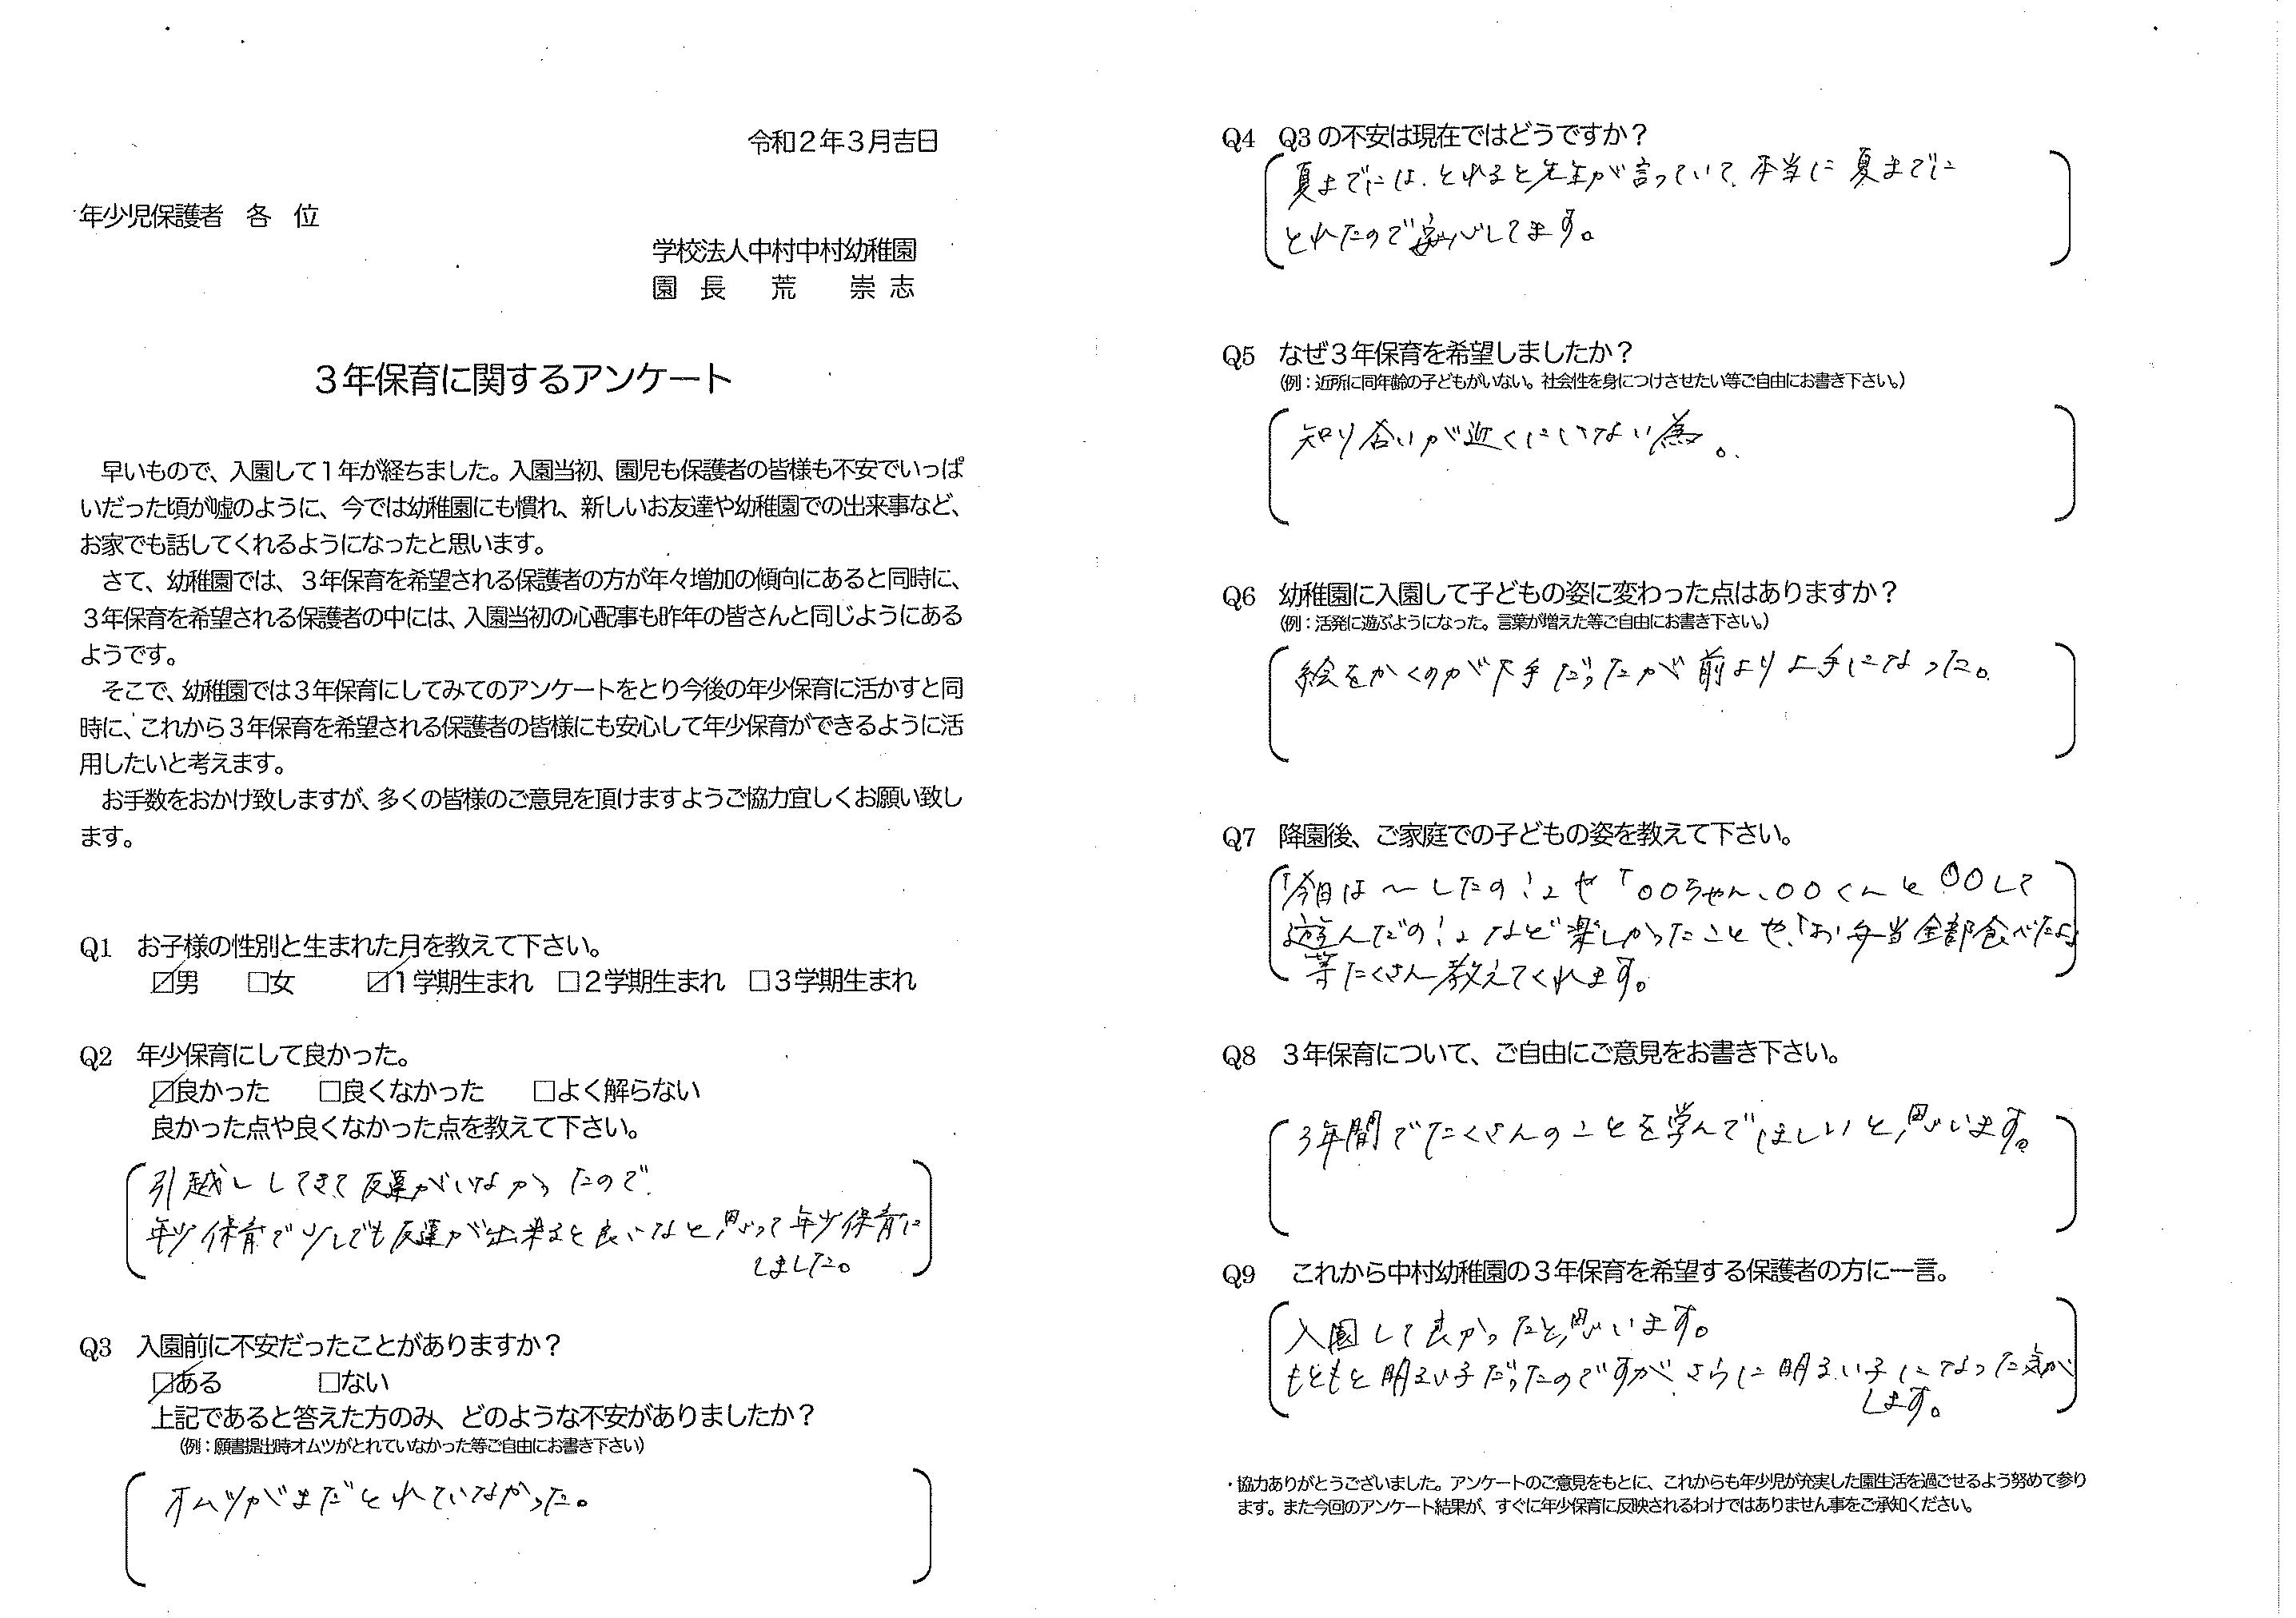 令和２年３月吉日
年少児保護者　各　位
学校法人中村中村幼稚園
園　長　　荒　　崇　志
３年保育に関するアンケート
早いもので、入園して１年が経ちました。入園当初、園児も保護者の皆様も不安でいっぱ
いだった頃が嘘のように、今では幼稚園にも慣れ、新しいお友達や幼稚園での出来事など、
お家でも話してくれるようになったと思います。
さて、幼稚園では、３年保育を希望される保護者の方が年々増加の傾向にあると同時に、
３年保育を希望される保護者の中には、入園当初の心配事も昨年の皆さんと同じようにある
ようです。
そこで、幼稚園では３年保育にしてみてのアンケートをとり今後の年少保育に活かすと同
時に、これから３年保育を希望される保護者の皆様にも安心して年少保育ができるように活
用したいと考えます。
お手数をおかけ致しますが、多くの皆様のご意見を頂けますようご協力宜しくお願い致し
ます。
Q1　お子様の性別と生まれた月を教えて下さい。
☑男　□女　☑１学期生まれ　□２学期生まれ　□３学期生まれ
Q2　年少保育にして良かった。
☑良かった　□良くなかった　□よく解らない
良かった点や良くなかった点を教えて下さい。
引越ししてきて友達がいなかったので、
年少保育で少しでも友達が出来ると良いなと思って年少保育に
しました。
Q3　入園前に不安だったことがありますか？
☑ある　□ない
上記であると答えた方のみ、どのような不安がありましたか？
（例：願書提出時オムツがとれていなかった等ご自由にお書き下さい）
オムツがまだとれていなかった。
Q4　Q3の不安は現在ではどうですか？
夏までには、とれると先生が言っていて、本当に夏までに
とれたので安心してます。
Q5　なぜ３年保育を希望しましたか？
（例：近所に同年齢の子どもがいない。社会性を身につけさせたい等ご自由にお書き下さい。）
知り合いが近くにいない為。
Q6　幼稚園に入園して子どもの姿に変わった点はありますか？
（例：活発に遊ぶようになった。言葉が増えた等ご自由にお書き下さい。）
絵をかくのが下手だったが前より上手になった。
Q7　降園後、ご家庭での子どもの姿を教えて下さい。
「今日は〜したの！」や「〇〇ちゃん、〇〇くんと〇〇して
遊んだの！」など楽しかったことや、「お弁当全部食べたよ」
等たくさん教えてくれます。
Q8　３年保育について、ご自由にご意見をお書き下さい。
３年間でたくさんのことを学んでほしいと思います。
Q9　これから中村幼稚園の３年保育を希望する保護者の方に一言。
入園して良かったと思います。
もともと明るい子だったのですが、さらに明るい子になった気が
します。
・協力ありがとうございました。アンケートのご意見をもとに、これからも年少児が充実した園生活を過ごせるよう努めて参り
ます。また今回のアンケート結果が、すぐに年少保育に反映されるわけではありません事をご承知ください。